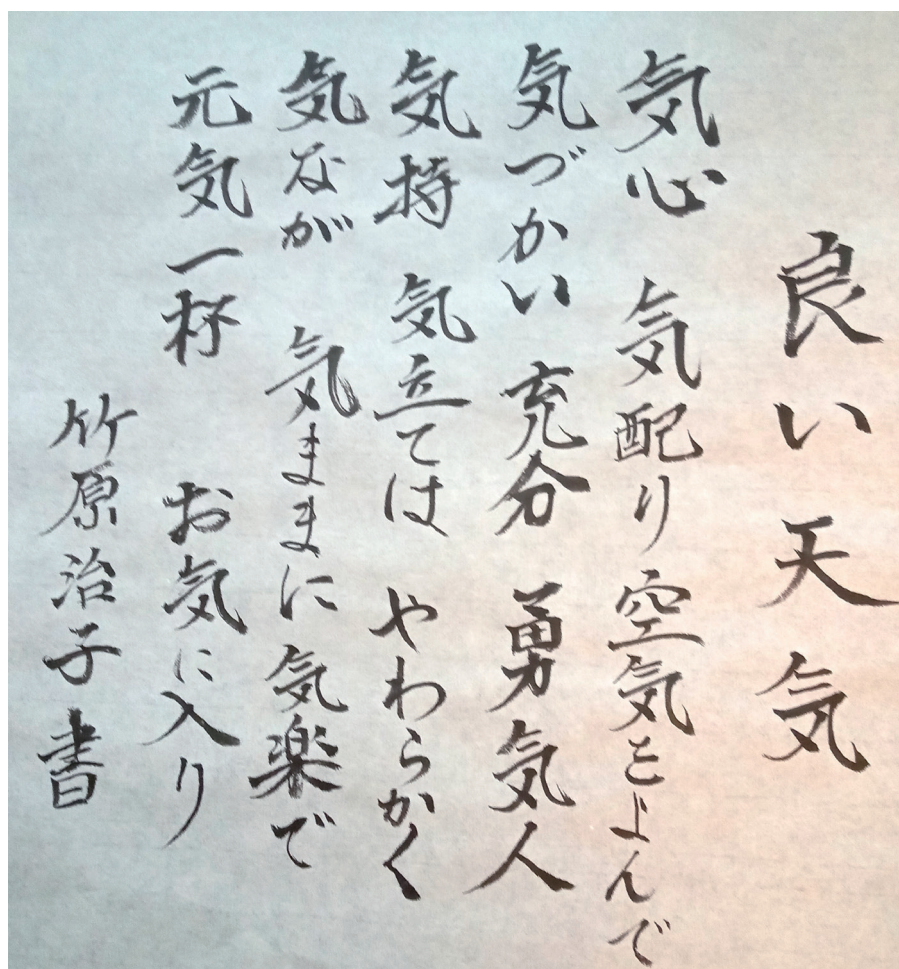 良い天気
気心 気配り空気をよんで
気づかい 充分 勇気人
気持 気立ては やわらかく
気なが 気ままに 気楽で
元気一杯 お気に入り
竹原治子書